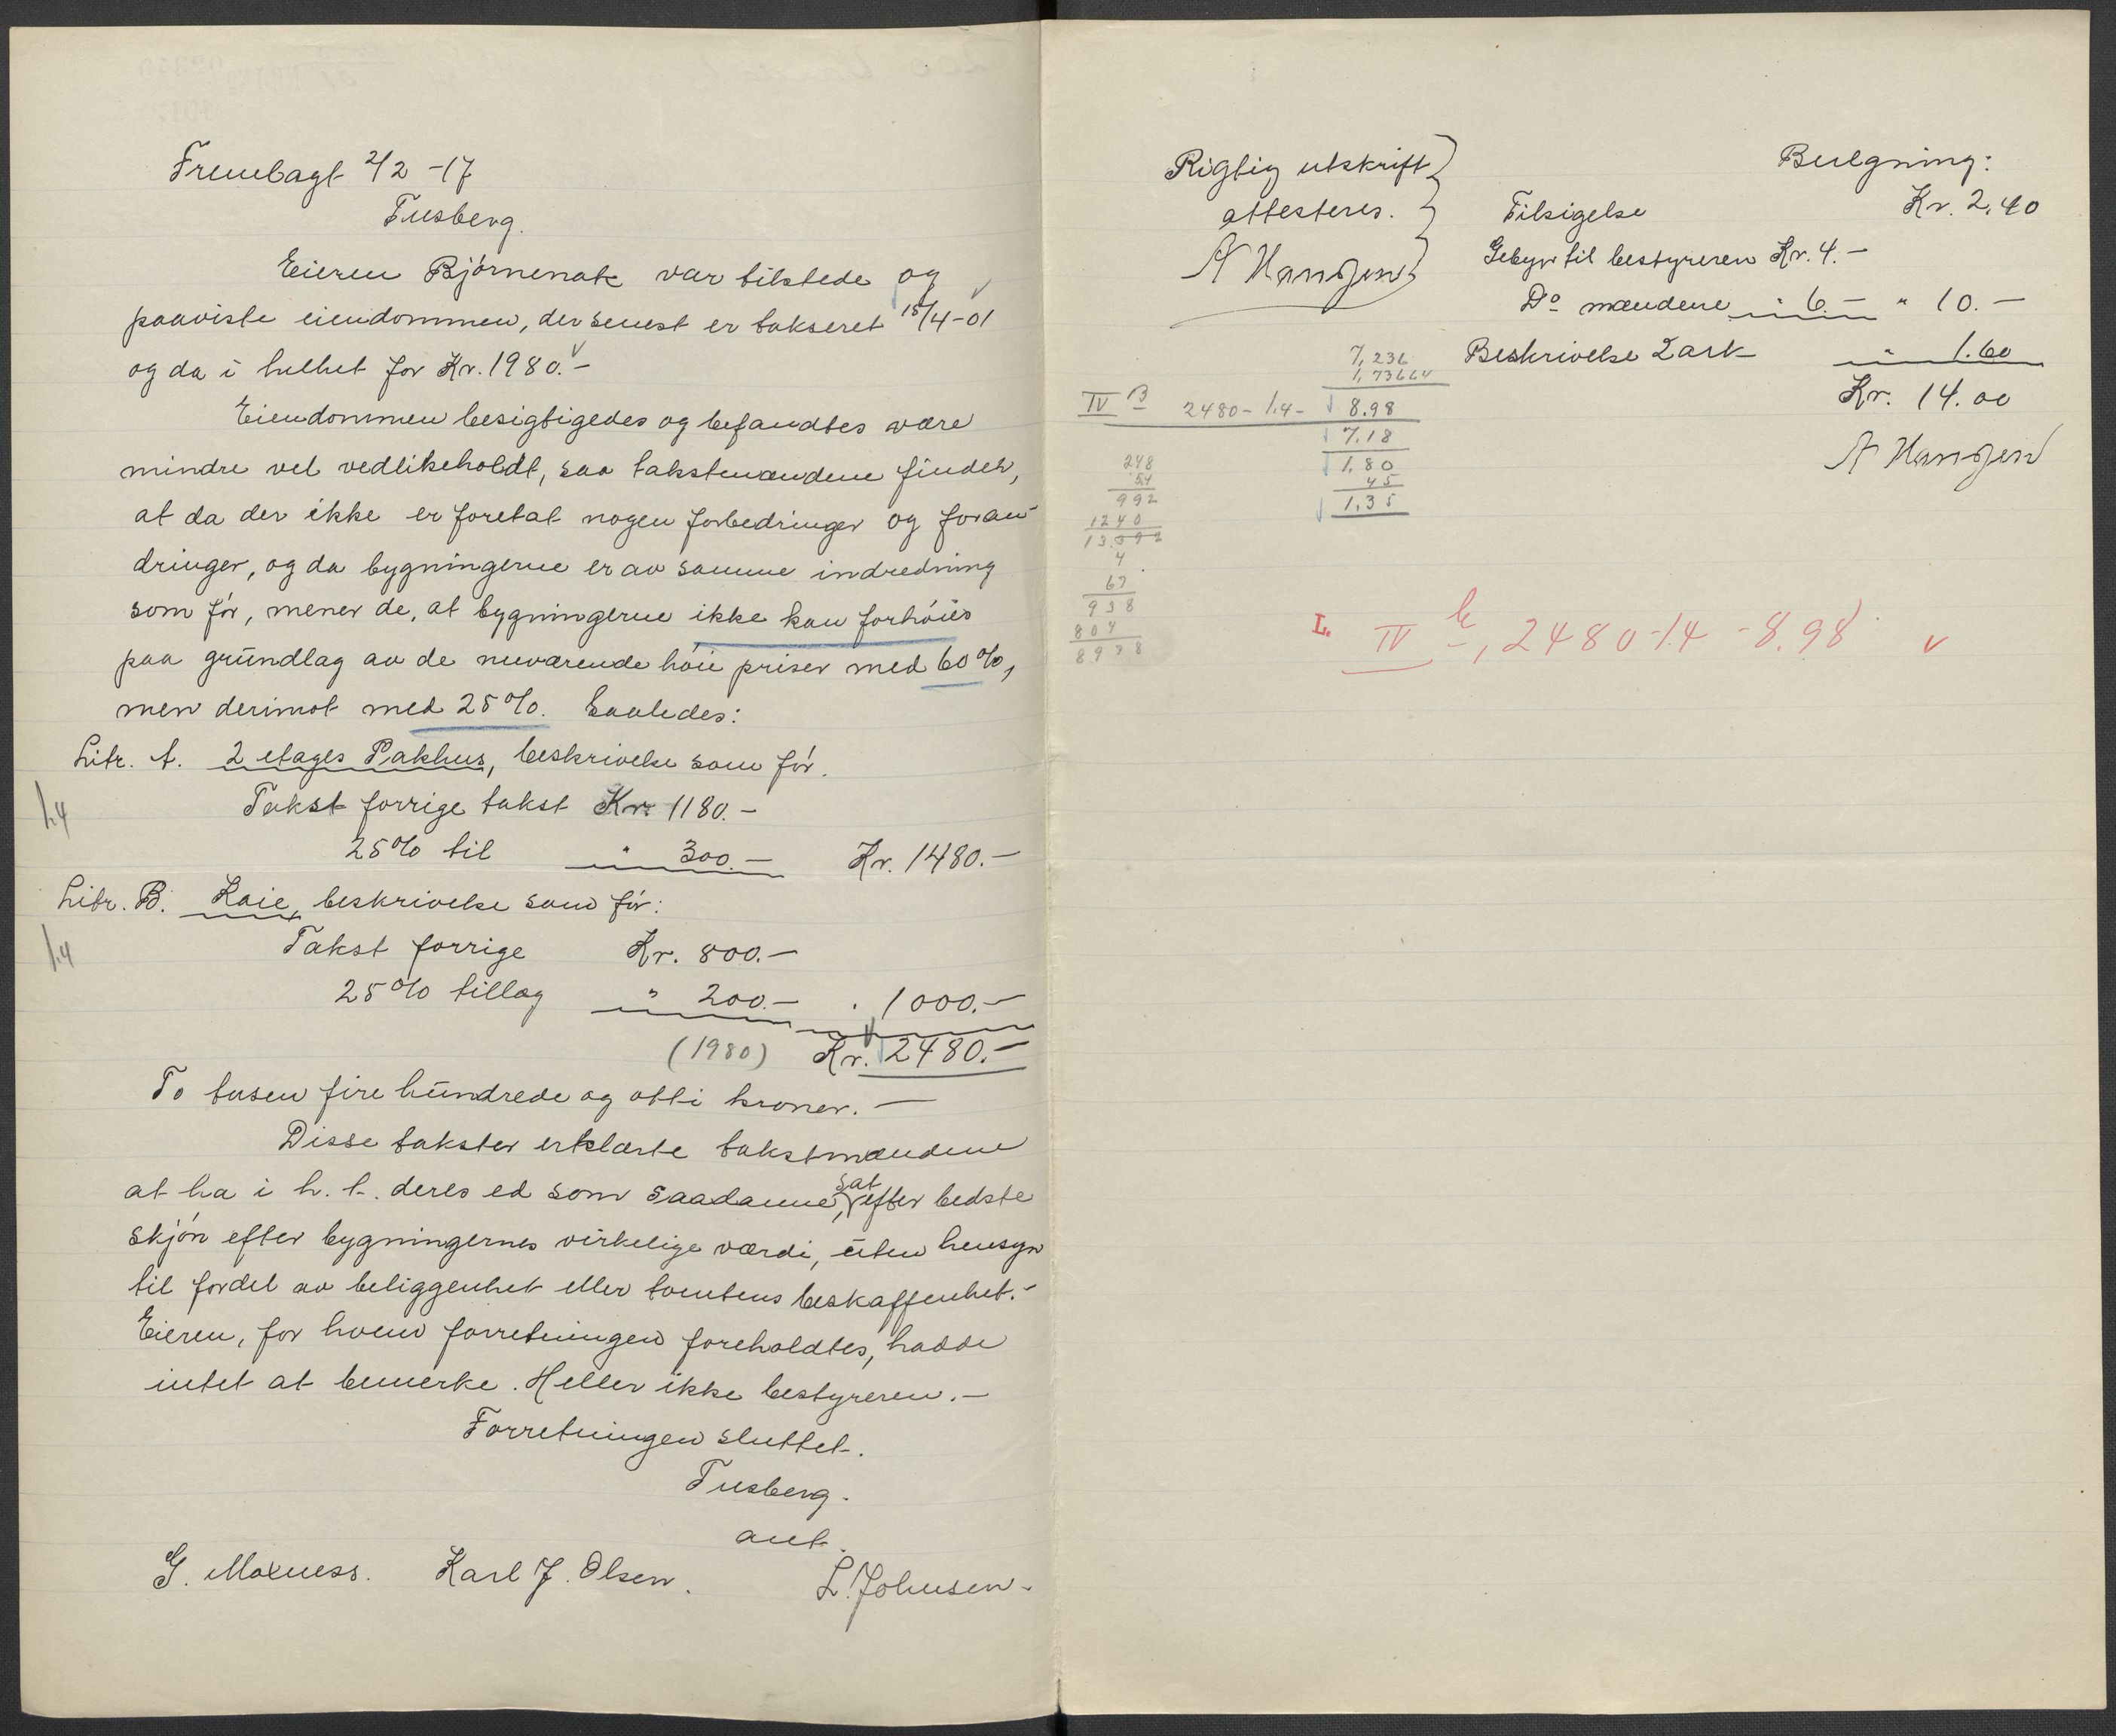 Frembagt 2/2 -17
Tusberg.
Eieren Bjørnenak var tilstede og
paaviste eiendommen, der senest er takseret 15/4-01
og da i helhet for Kr. 1980.-
Eiendommen besigtigedes og befandtes være
mindre vel vedlikeholdt, saa takstmændene finder,
at da der ikke er foretat nogen forbedringer og foran-
dringer, og da bygningerne er av samme indredning
som før, mener de, at bygningerne ikke kan forhøies
paa grundlag av de nuværende høie priser med 60%,
men derimot med 25%. Saaledes:
Litr. A. 2 etages Pakhus, beskrivelse som før.
1.4 Takst forrige takst Kr. 1180.-
25% til " 300.- Kr. 1480.-
Litr. B. Kaie, beskrivelse som før:
1.4 Takst forrige Kr. 800.-
25% tillæg " 200.- " 1000.-
(1980) Kr. 2480.-
To tusen fire hundrede og otti kroner. -
Disse takster erklærte takstmændene
at ha i h. t. deres ed som saadanne, sat efter bedste
skjøn efter bygningernes virkelige værdi, uten hensyn
til fordel av beliggenhet eller tomtens beskaffenhet.-
Eieren, for hvem forretningen foreholdtes, hadde
intet at bemerke. Heller ikke bestyreren.-
Forretningen sluttet.
Tusberg.
aut.
G. Moxness. Karl J. Olsen. L. Johnsen.
Rigtig utskrift
attesteres.
A Hansen
Beregning:
Tilsigelse Kr. 2,40
Gebyr til bestyreren Kr. 4.-
Do mændene " 6.- " 10.-
Beskrivelse 2 ark " 1.60
Kr. 14.00
A Hansen
7,236
1,73664
IV B 2480 - 1.4 - 8.98
7.18
1,80
45
1,35
248
54
992
1240
13.392
4
67
938
804
8978
L. IV b, 2480-1.4 - 8.98 v